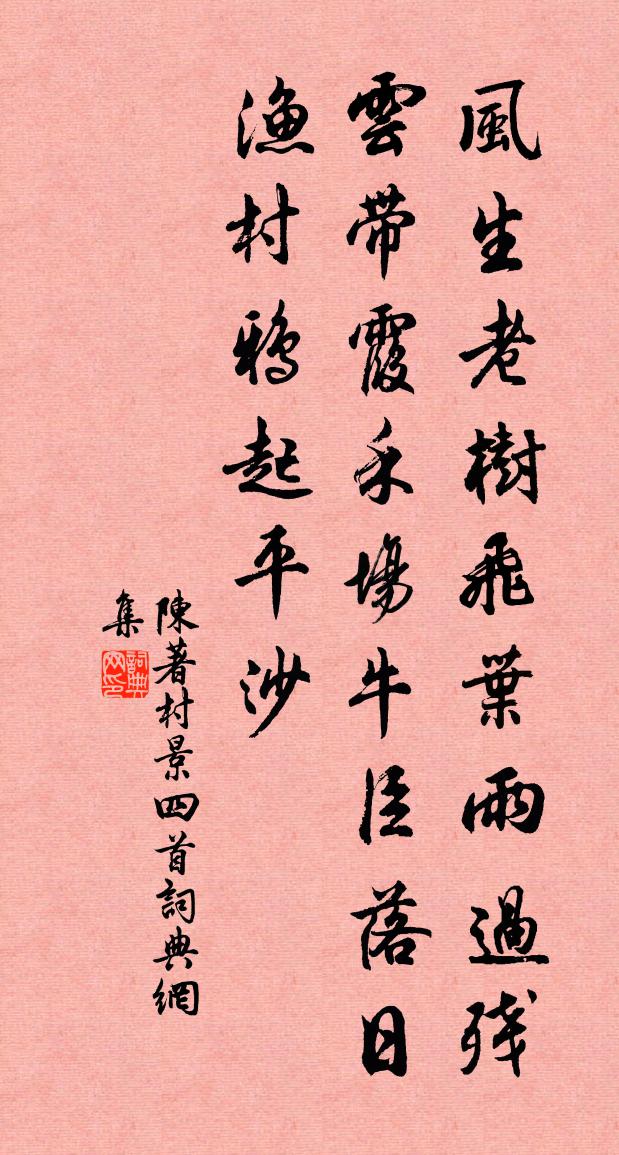 風生老樹飛葉雨過殘
雲帶霞禾場牛臣落日
漁村鴉起平沙
陳著村景四首詞典網
集
詞典
网印